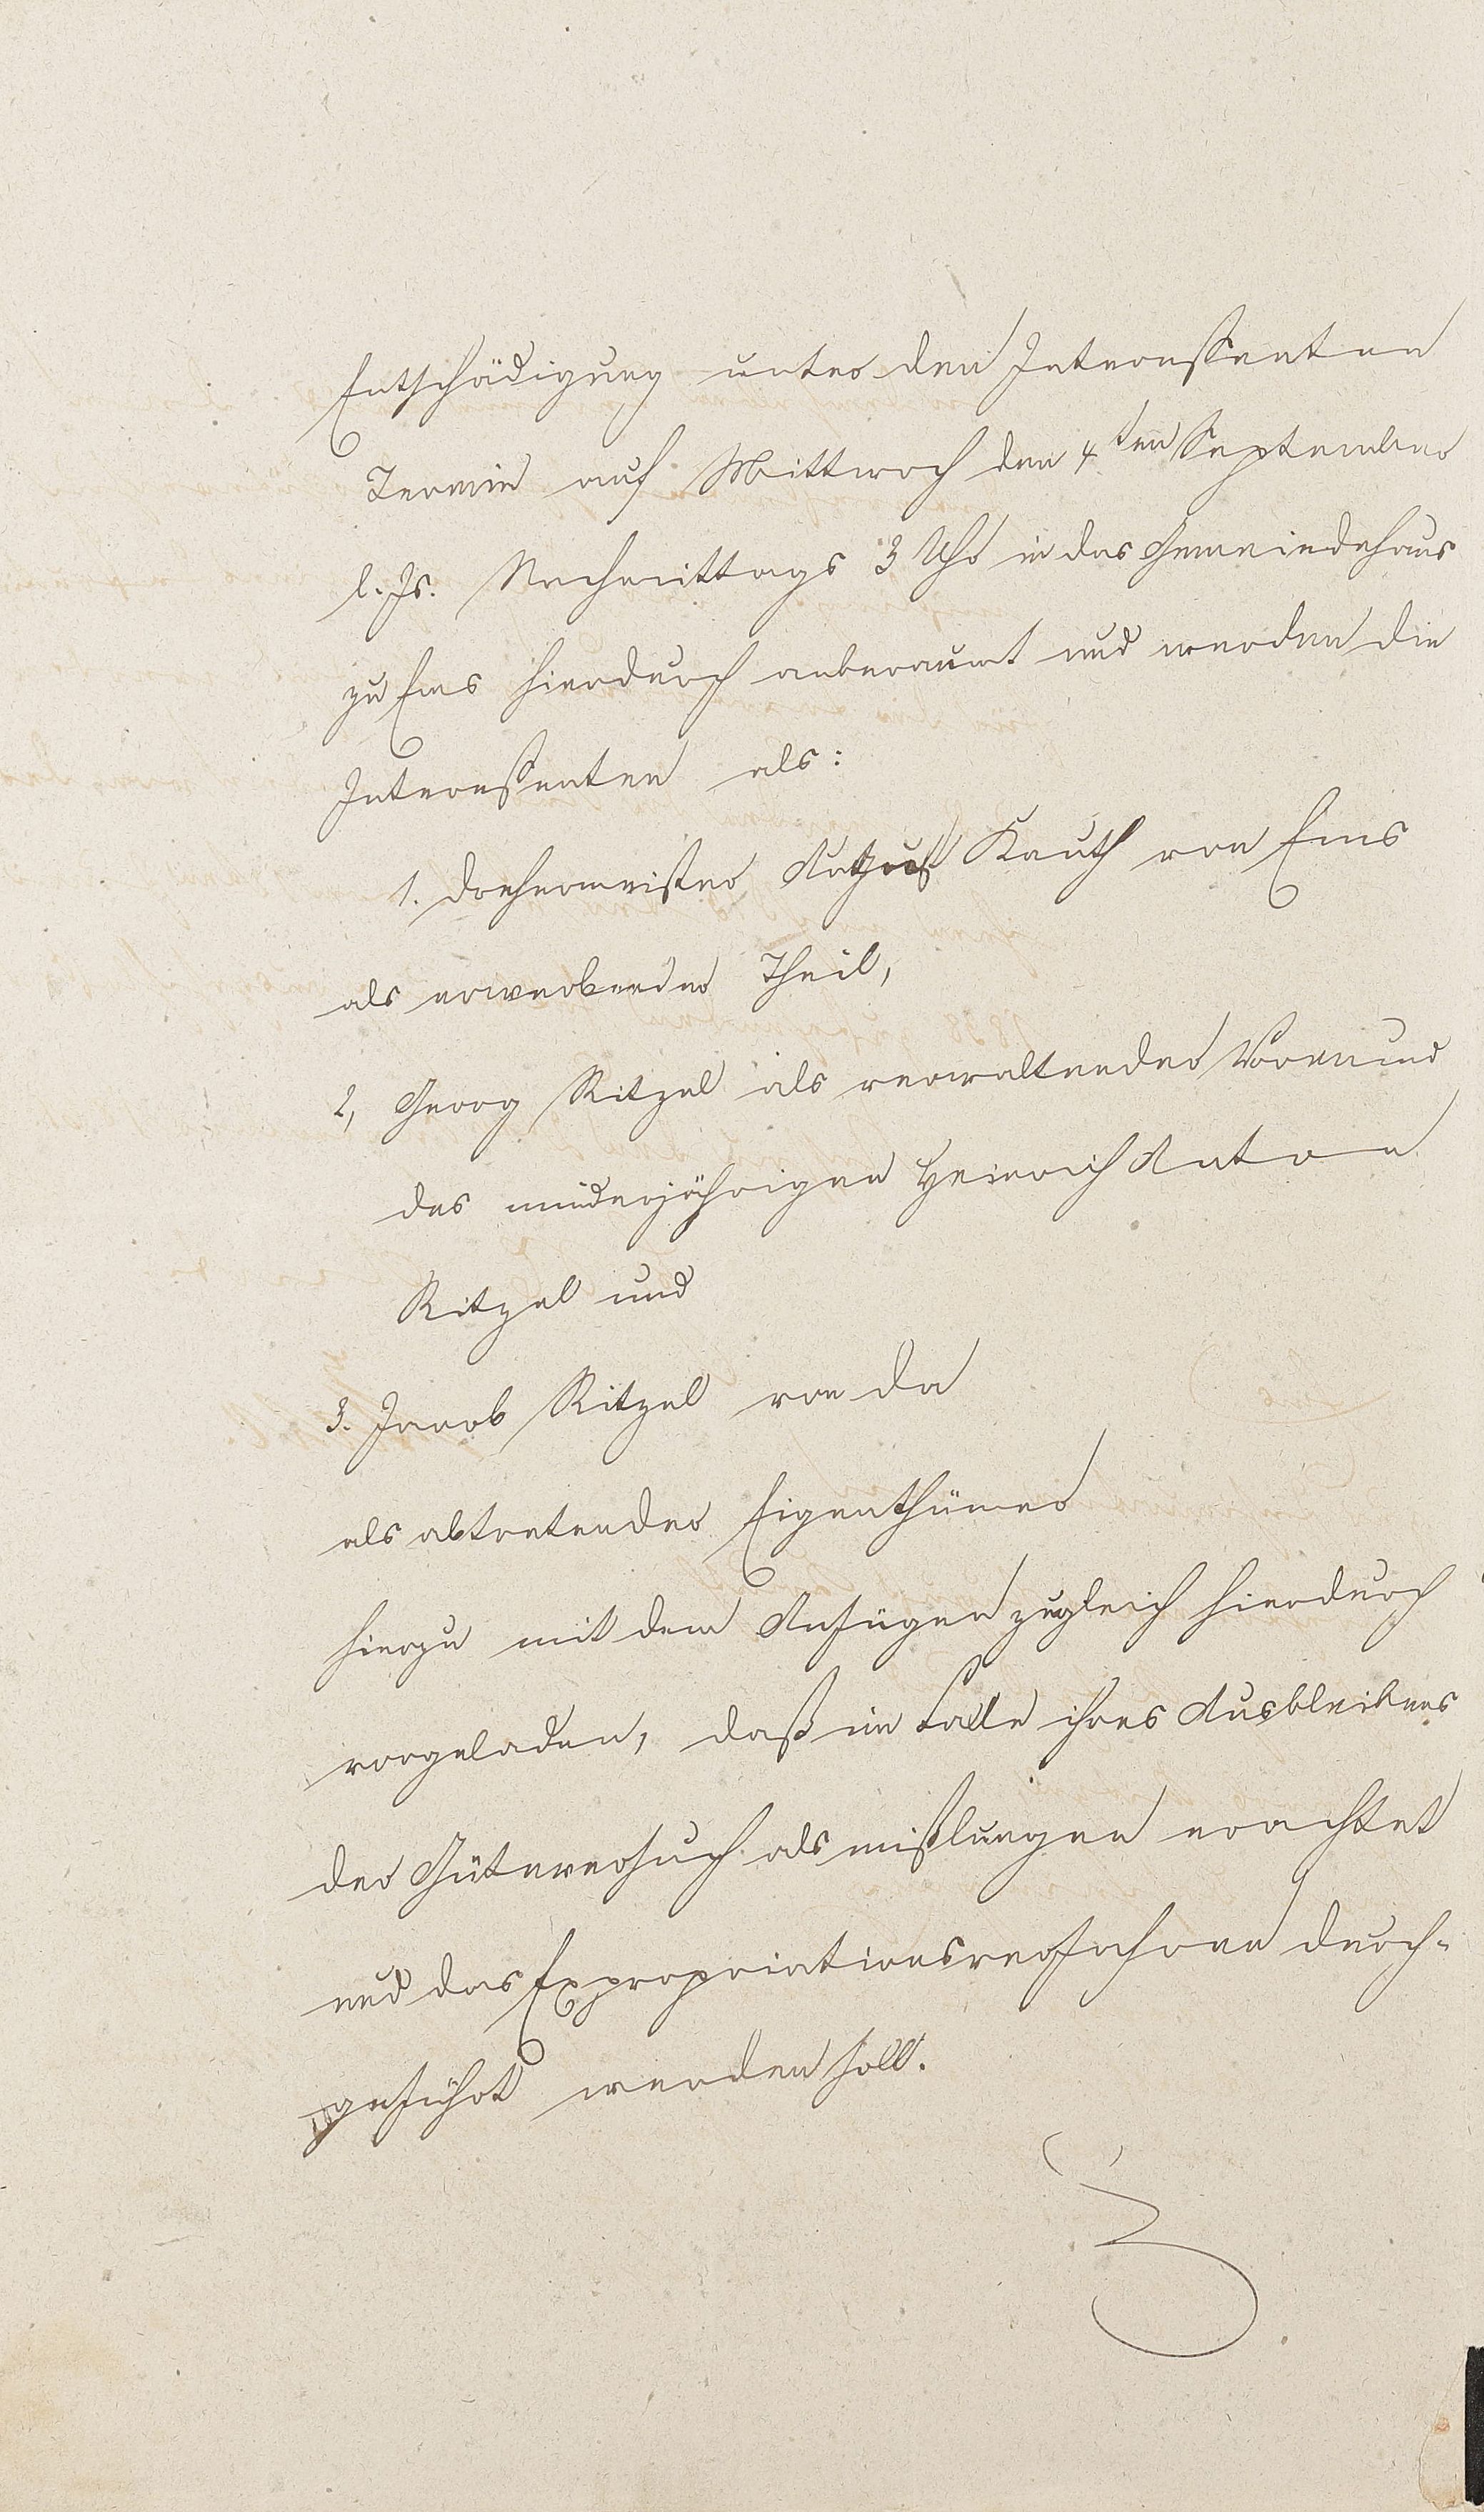 Entschädigung unter den Interessenten
Termin auf Mittwoch den 4ten September
l. Js. Nachmittags 3 Uhr in das Gemeindehaus
zu Ems hierdurch anberaumt und werden die
Interessenten als:
1. Drehermeister August Kauth von Ems
als erwerbender Theil,
2, Georg Ritzel als verwaltender Vormund
des minderjährigen Heinrich Anton
Ritzel und
3. Jacob Ritzel von da
als abtretender Eigenthümer
hierzu mit dem Anfügen zugleich hierdurch
vorgeladen, daß im Falle ihres Ausbleibens
der Güteversuch als mißlungen erachtet
und das Expropriationsverfahren durch-
geführt werden soll.